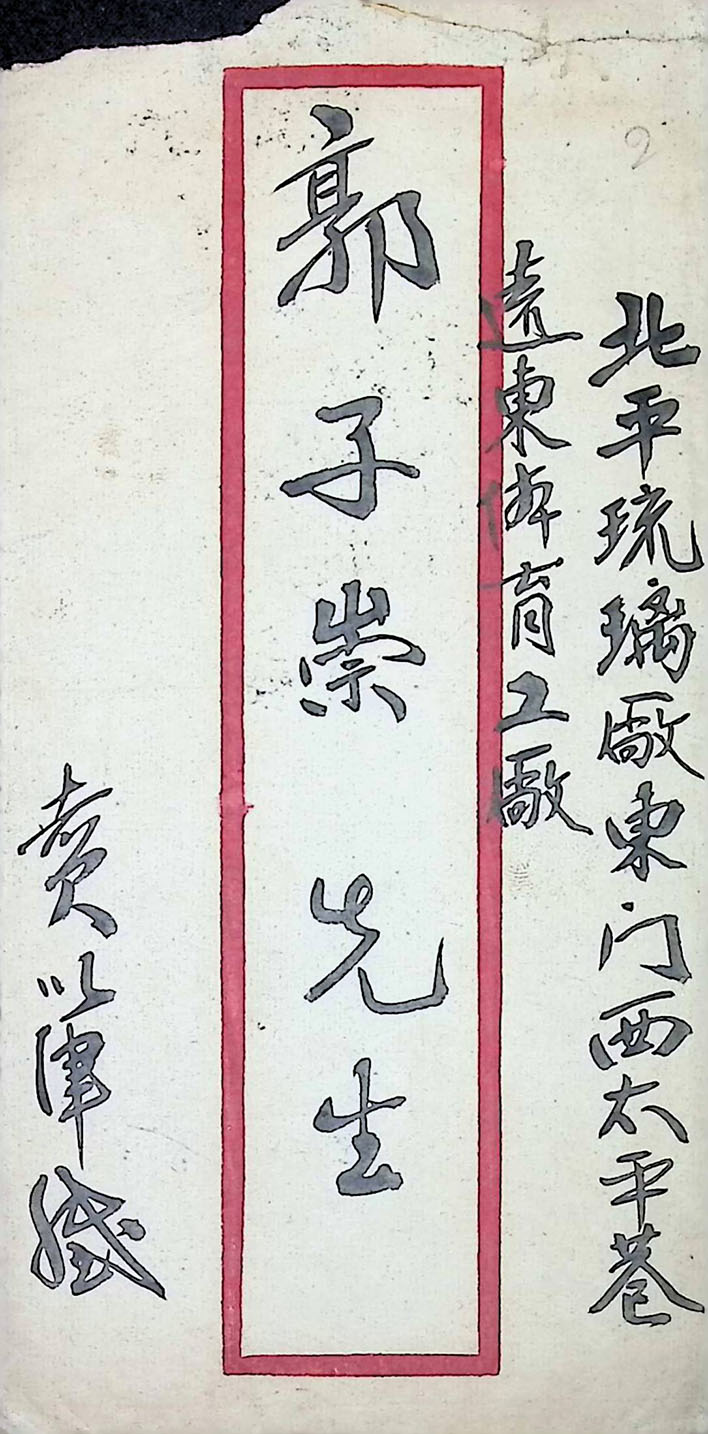 北平琉璃廠東门西太平巷
遠東体育工廠
郭子崇先生
以津緘
2